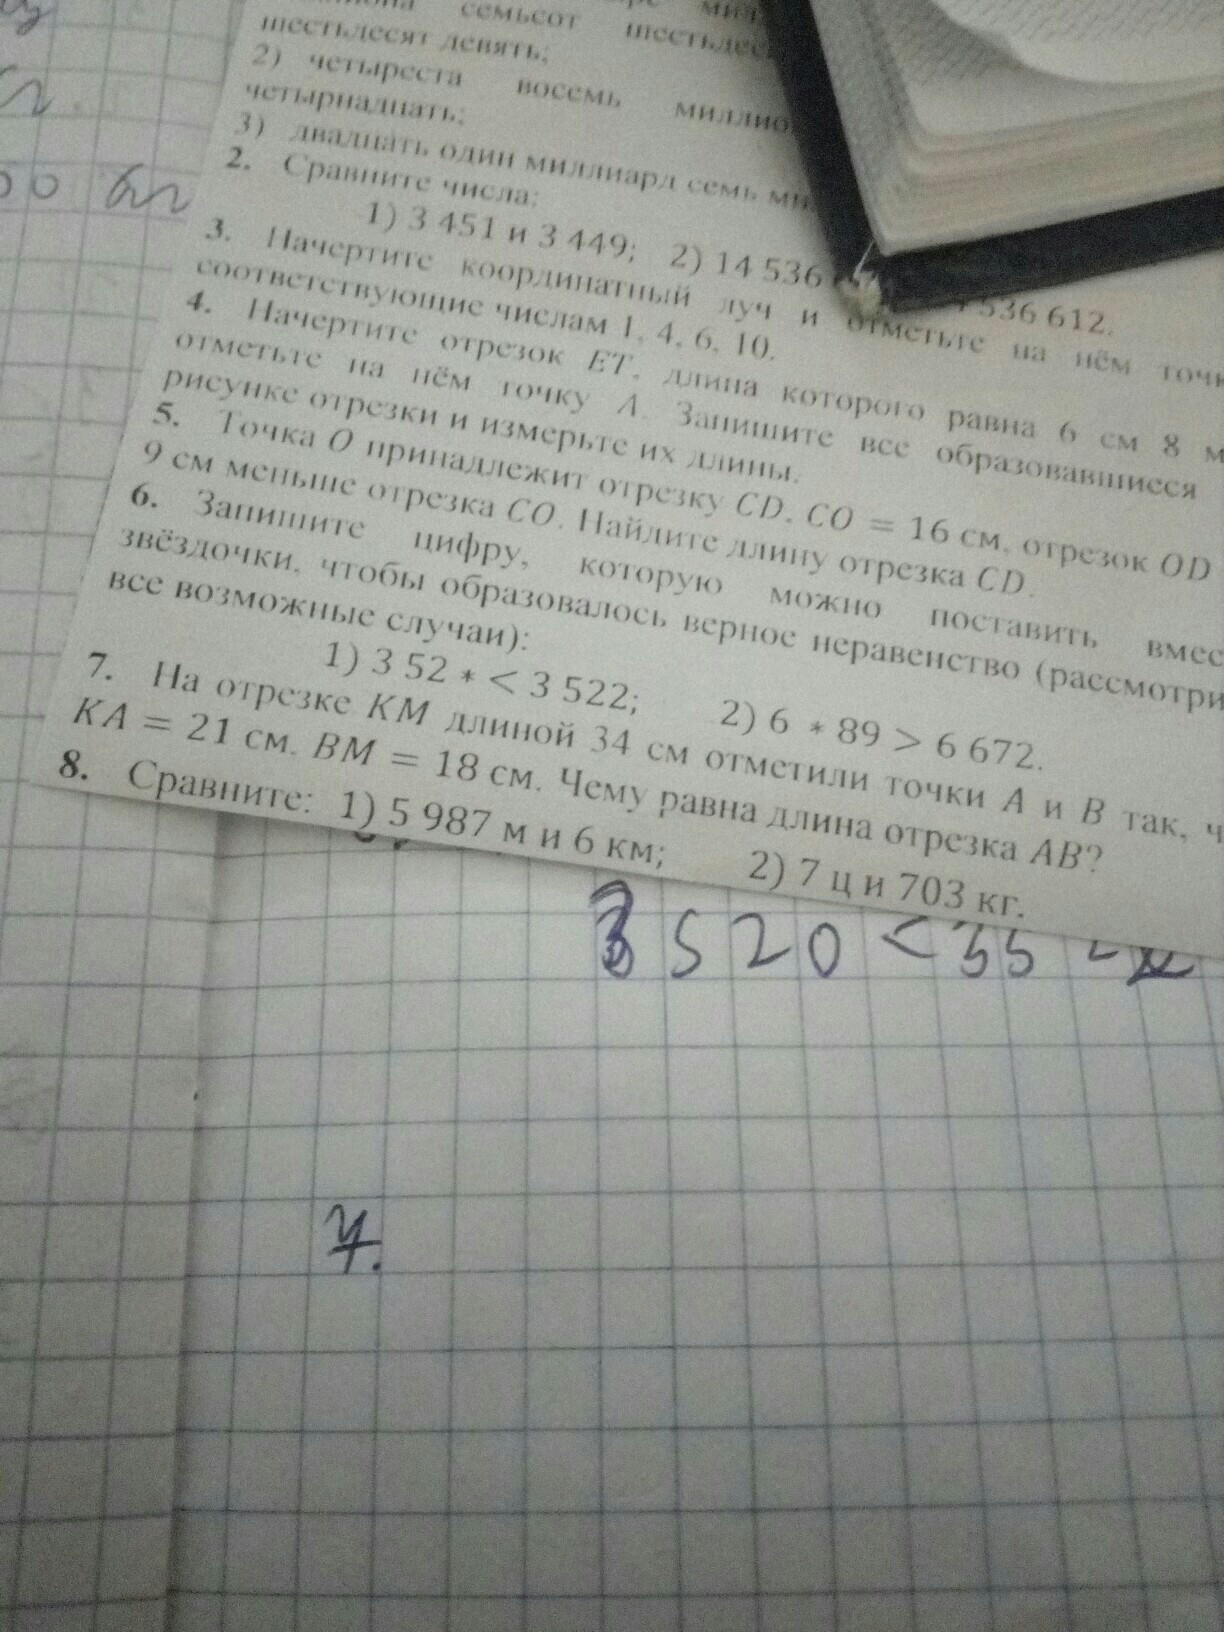 семьсот
шестьдесят девять;
2) четыреста восемь
четырнадцать;
3) двадцать один миллиард семь
2. Сравните числа:
1) 3 451 и 3 449; 2) 14 536 536 612.
3. Начертите координатный луч и отметьте на нём
соответствующие числам 1, 4, 6, 10.
4. Начертите отрезок ET, длина которого равна 6 см 8
отметьте на нём точку A. Запишите все образовавшиеся
рисунке отрезки и измерьте их длины.
5. Точка O принадлежит отрезку CD, CO = 16 см, отрезок OD
9 см меньше отрезка CO. Найдите длину отрезка CD.
6. Запишите цифру, которую можно поставить
звёздочки, чтобы образовалось верное неравенство
все возможные случаи):
1) 3 52 * < 3 522; 2) 6 * 89 > 6 672.
7. На отрезке KM длиной 34 см отметили точки A и B так,
KA = 21 см, BM = 18 см. Чему равна длина отрезка AB?
8. Сравните: 1) 5 987 м и 6 км; 2) 7 ц и 703 кг.
3520 < 35
7.